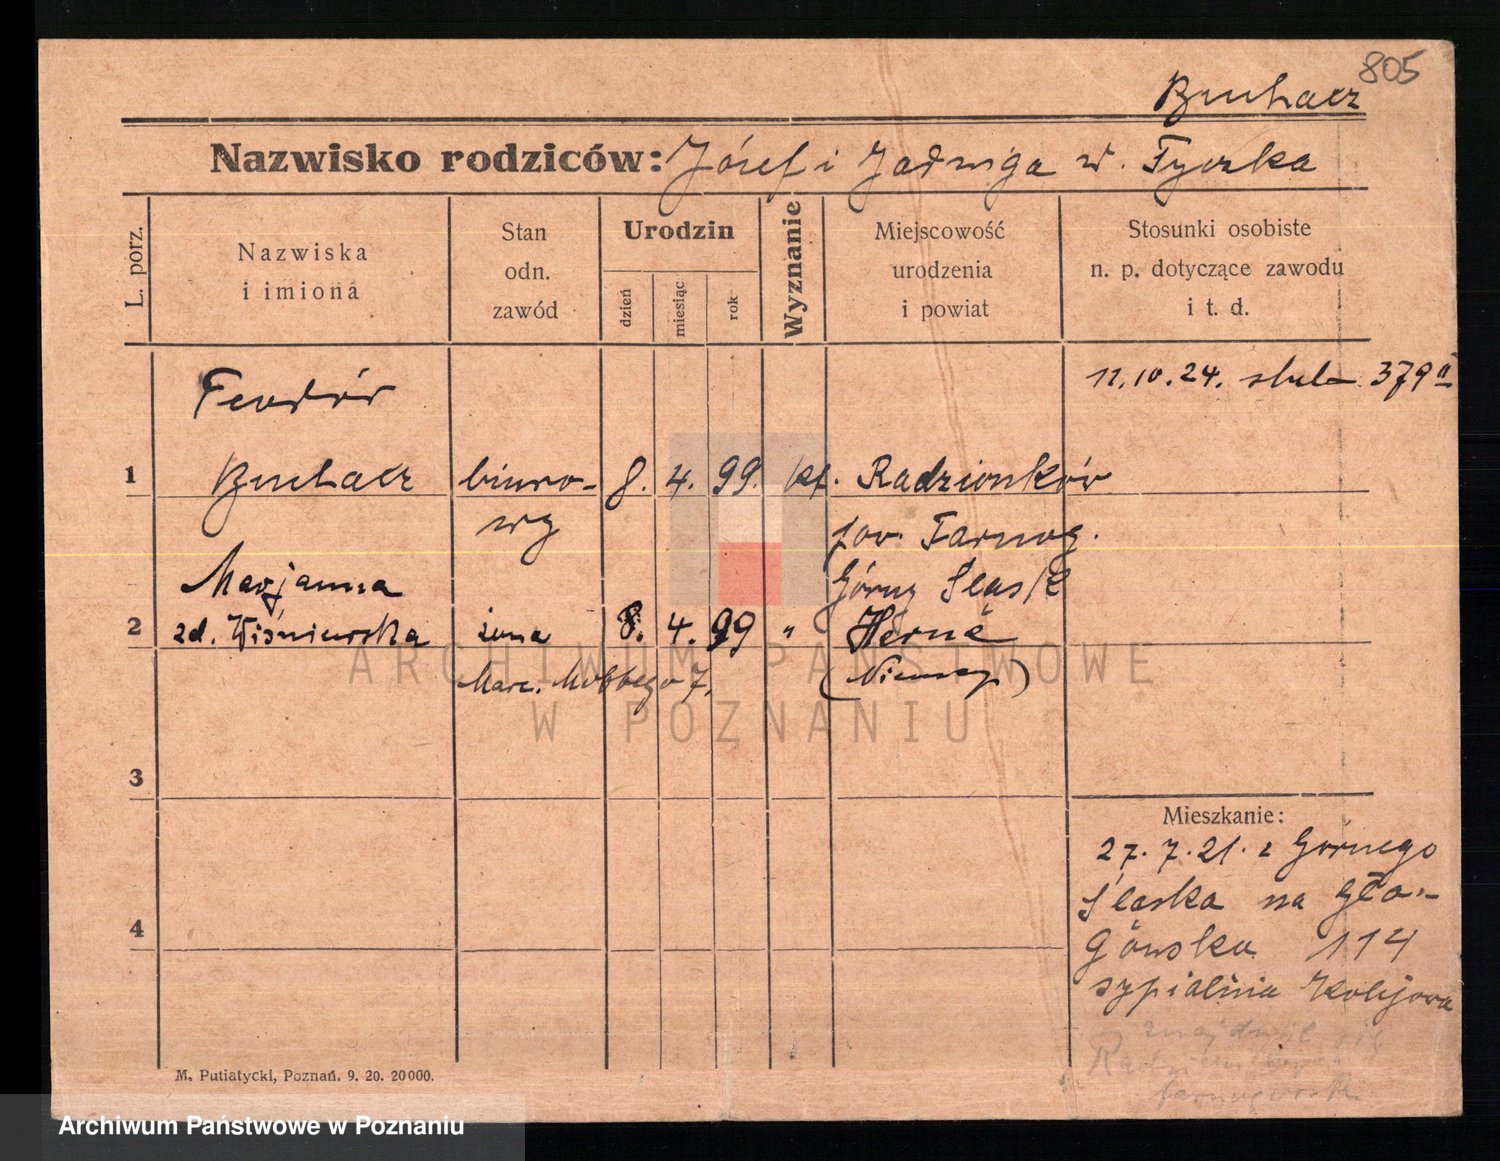 805
Buchacz
Nazwisko rodziców: Józef i Jadwiga w. Tyczka
L. porz.
Nazwiska
i imiona
Stan
odn.
zawód
Urodzin
dzień
miesiąc
rok
Wyznanie
Miejscowość
urodzenia
i powiat
Stosunki osobiste
n. p. dotyczące zawodu
i t. d.
11.10.24. 379 II
Teodór
1 Buchacz biuro- 8. 4. 99. kt. Radzionków
wy pow. Tarnog.
Marjanna Górny Śląsk
2 zd. Wiśniewska żona 8. 4. 99 " Herne
Marc. Mottego 7. (Niemcy)
3
Mieszkanie:
27.7.21. z Górnego
Śląska na Gło-
4 gówska 114
sypialnia
znajdował się
M. Putiatycki, Poznań. 9. 20. 20000.
ARCHIWUM PAŃSTWOWE
W POZNANIU
Archiwum Państwowe w Poznaniu